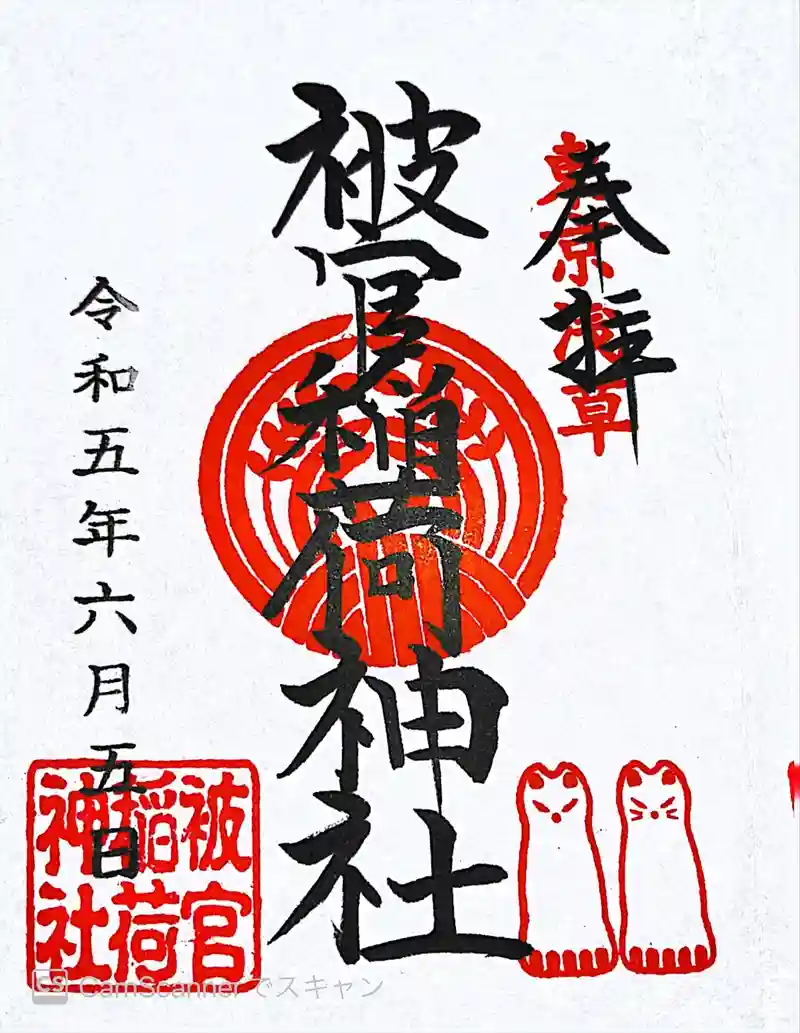 奉拝
東京浅草
被官稲荷神社
令和五年六月五日
被官
稲荷
神社
CS CamScannerでスキャン